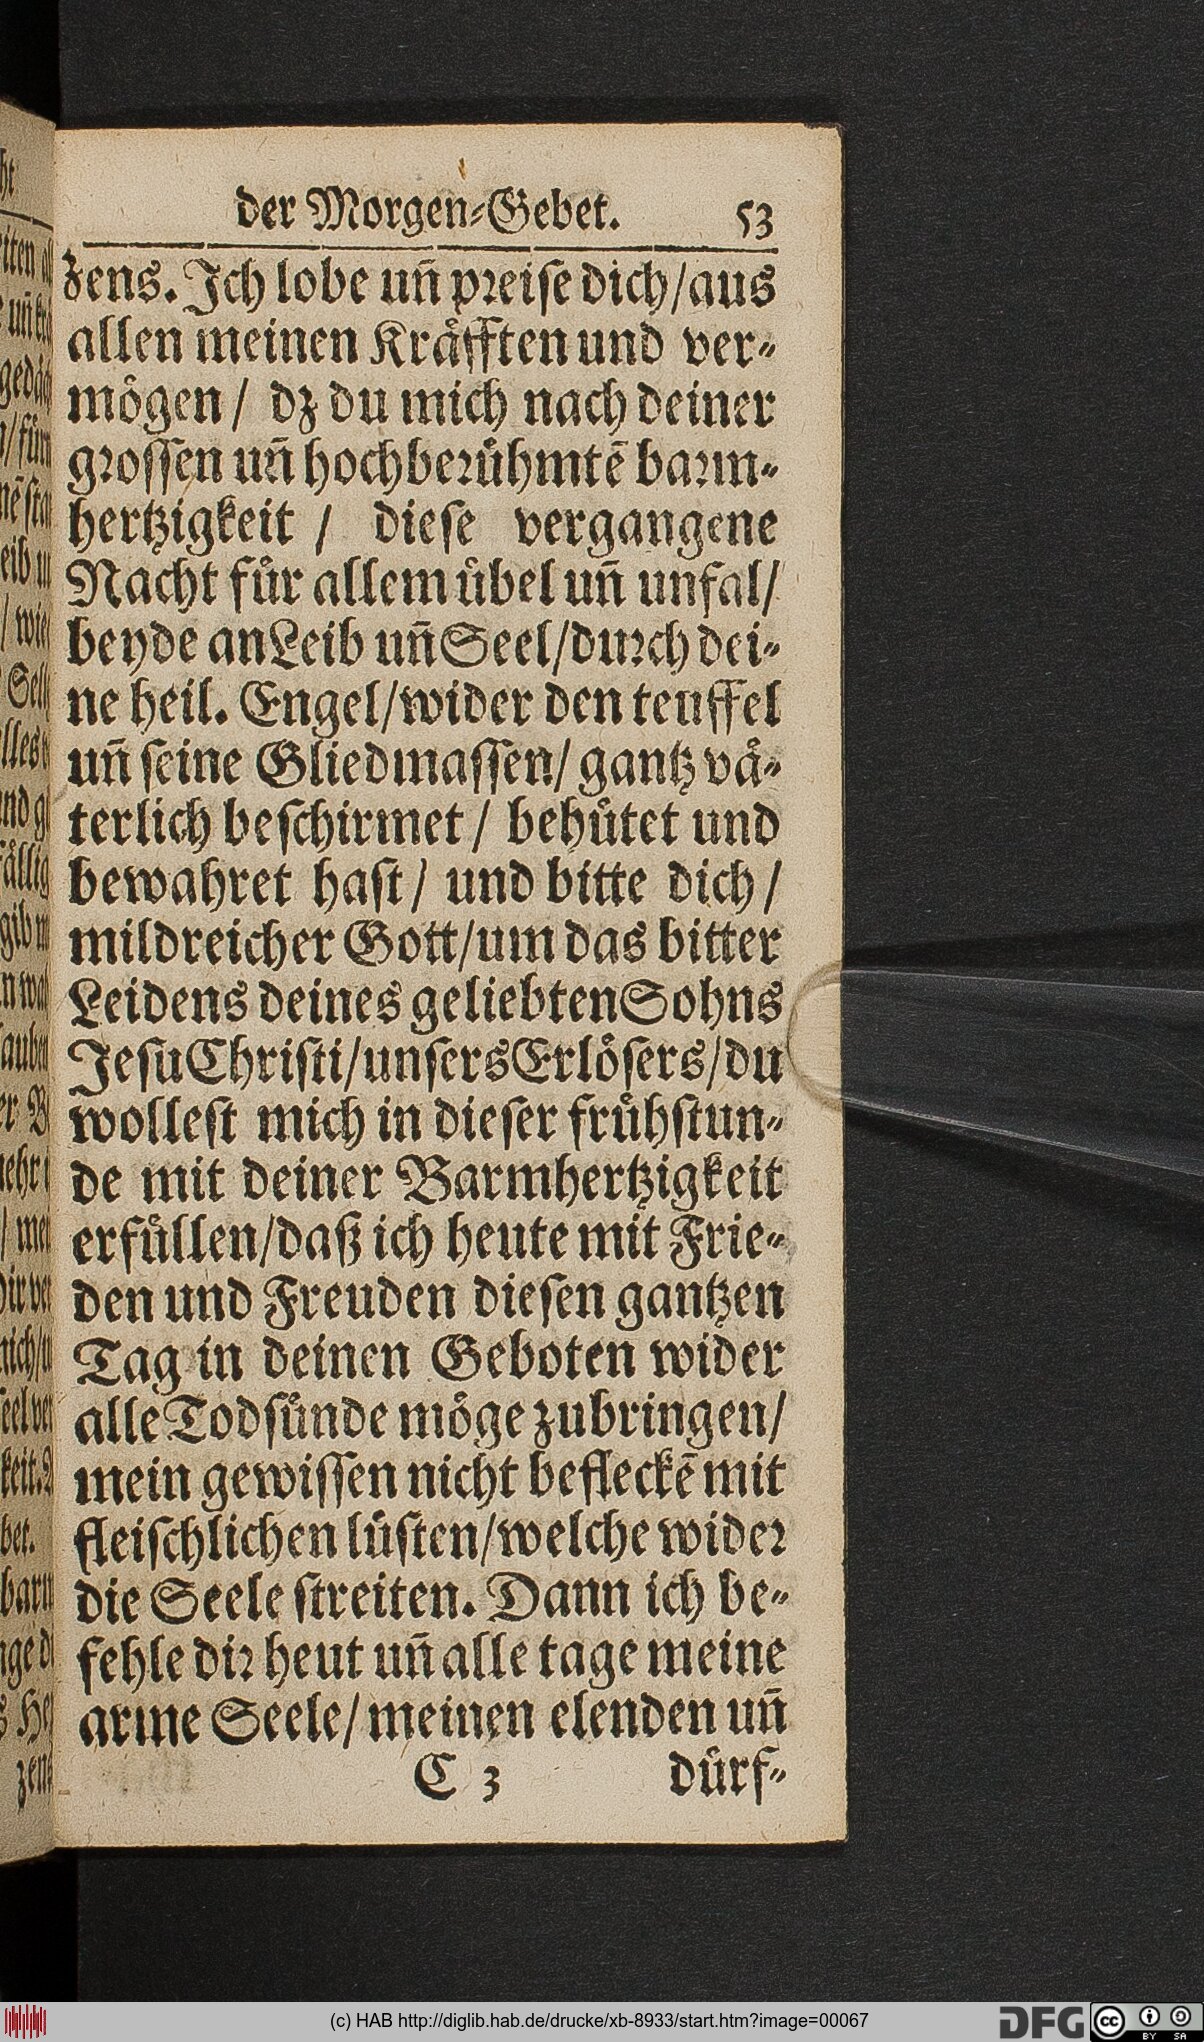 der Morgen⸗Gebet. 53
zens. Ich lobe uñ preiſe dich/aus
allen meinen Kraͤfften und ver⸗
moͤgen/ dz du mich nach deiner
groſſen uñ hochberuͤhmtẽ barm⸗
hertzigkeit / dieſe vergangene
Nacht fuͤr allem uͤbel uñ unfal/
beyde an Leib uñ Seel/durch dei⸗
ne heil. Engel/wider den teuffel
uñ ſeine Gliedmaſſen/ gantz vaͤ⸗
terlich beſchirmet/ behuͤtet und
bewahret haſt/ und bitte dich/
mildreicher Gott/um das bitter
Leidens deines geliebten Sohns
Jeſu Chriſti/unſers Erloͤſers/du
wolleſt mich in dieſer fruͤhſtun⸗
de mit deiner Barmhertzigkeit
erfuͤllen/daß ich heute mit Frie⸗
den und Freuden dieſen gantzen
Tag in deinen Geboten wider
alle Todſuͤnde moͤge zubringen/
mein gewiſſen nicht befleckẽ mit
fleiſchlichen luͤſten/welche wider
die Seele ſtreiten. Dann ich be⸗
fehle dir heut uñ alle tage meine
arme Seele/ meinen elenden uñ
C 3 duͤrf⸗
(c) HAB http://diglib.hab.de/drucke/xb-8933/start.htm?image=00067
DFG cc BY SA